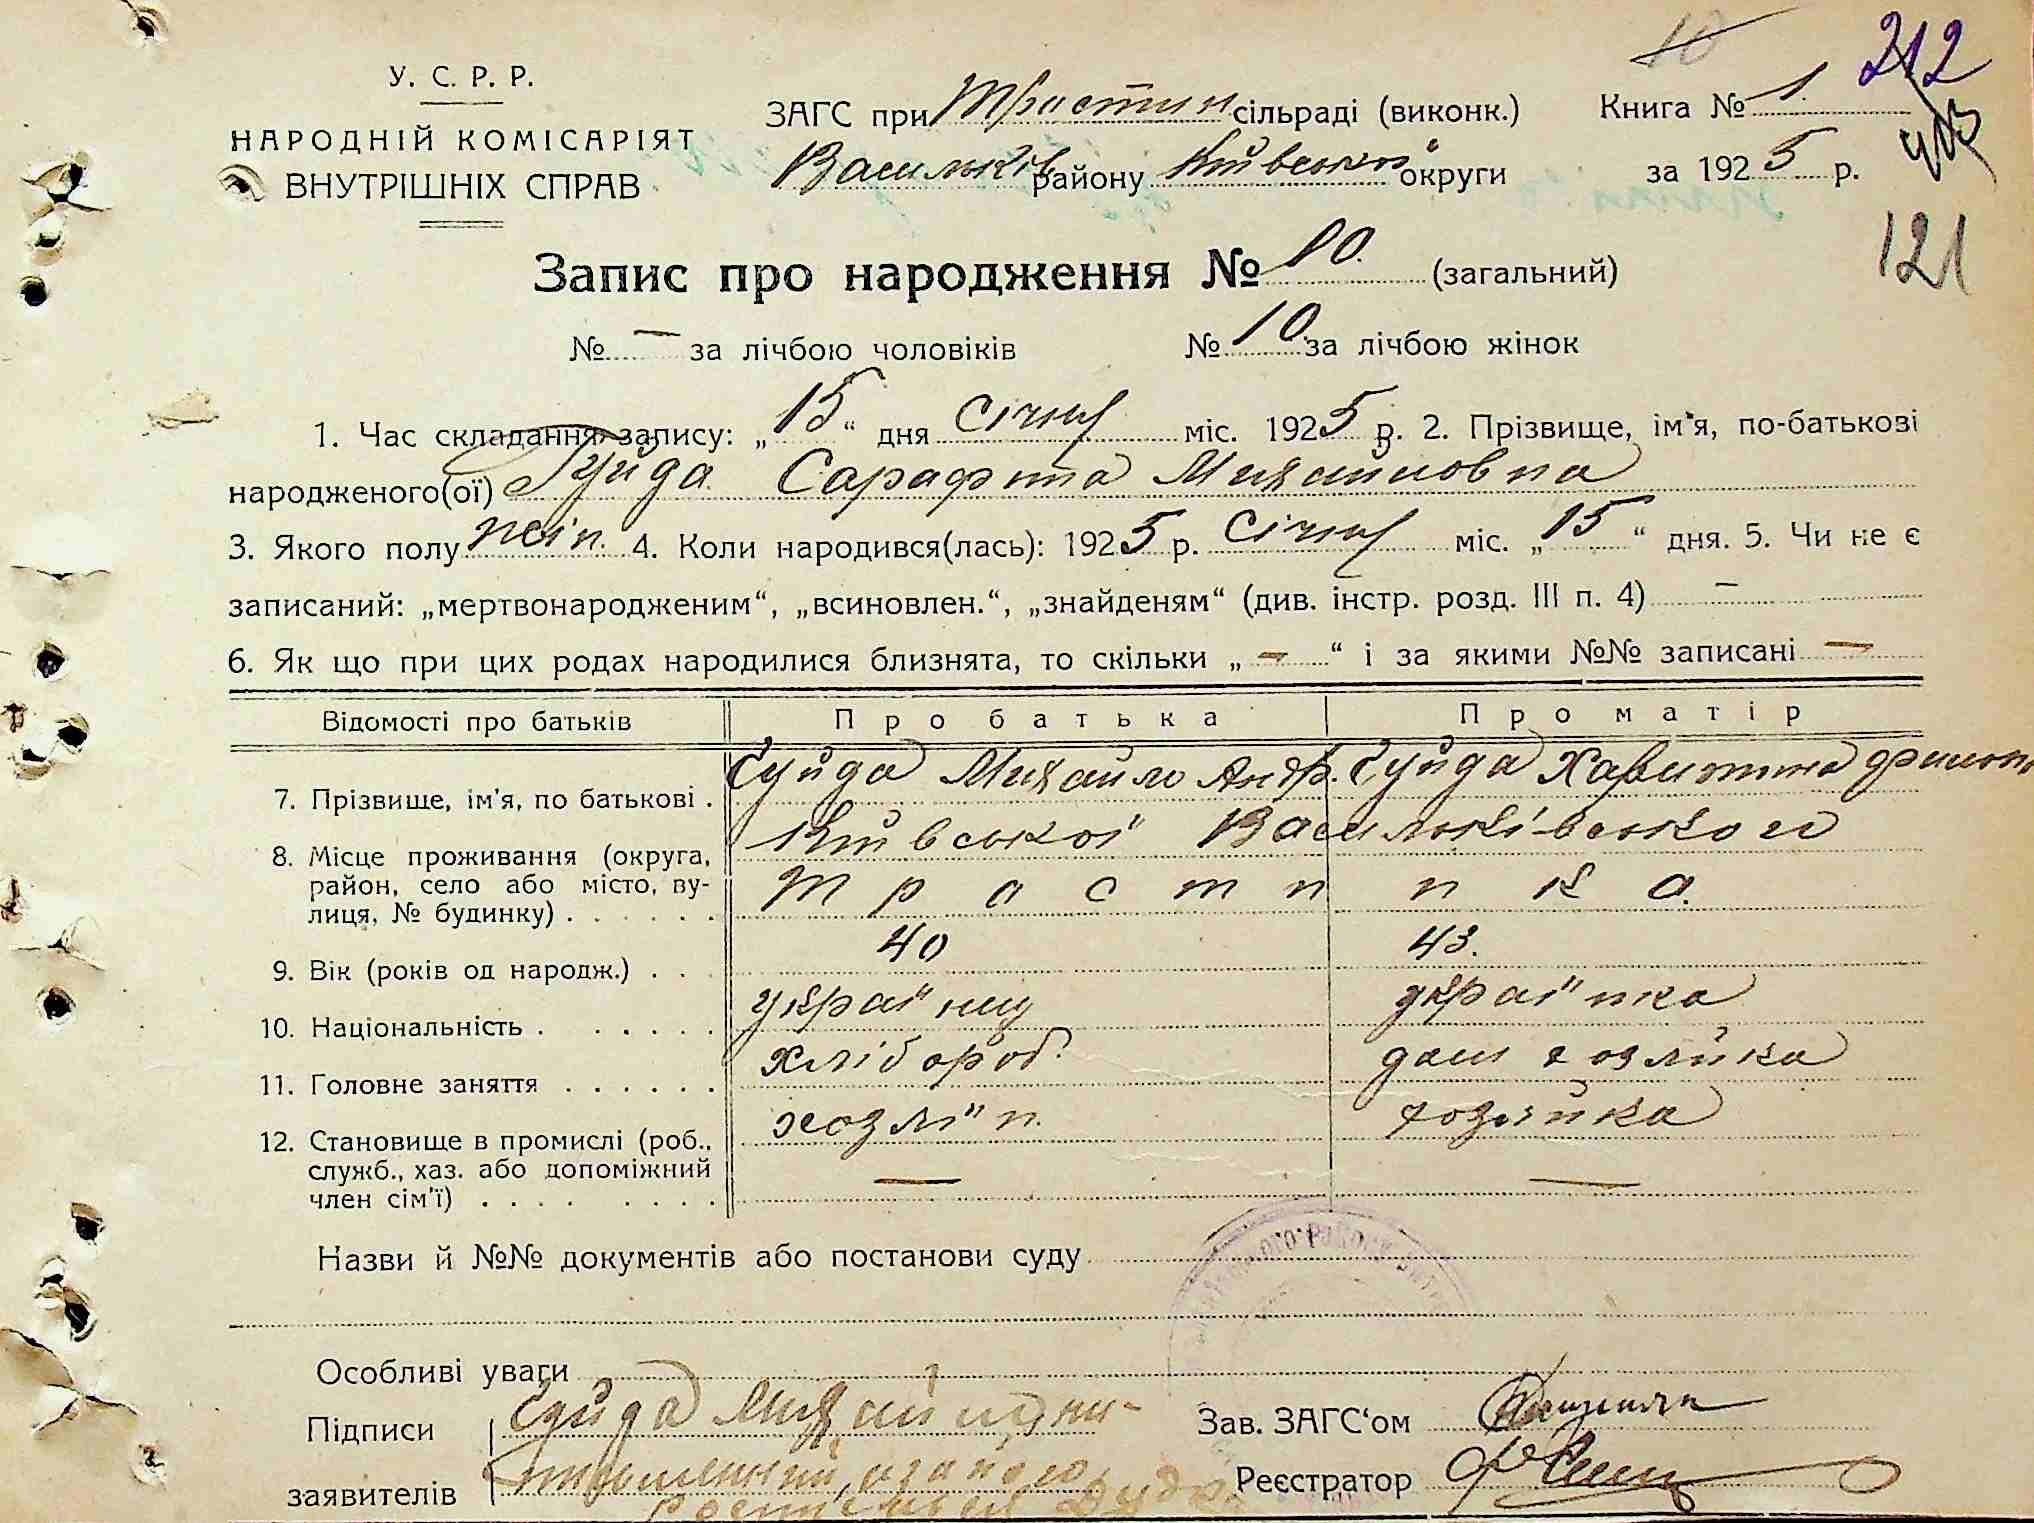 10 212
У. С. Р. Р.
НАРОДНІЙ КОМІСАРІЯТ
ВНУТРІШНІХ СПРАВ
ЗАГС при Трастин сільраді (виконк.)
Васильків району Київської округи
Книга № 1.
за 1925 р.
121
Запис про народження № 10. (загальний)
№ — за лічбою чоловіків № 10. за лічбою жінок
1. Час складання запису: „15“ дня Січня міс. 1925 р. 2. Прізвище, ім'я, по-батькові
народженого(ої) Гуйда Сарафита Михайловна
3. Якого полу жін. 4. Коли народився(лась): 1925 р. Січня міс. „15“ дня. 5. Чи не є
записаний: „мертвонародженим“, „всиновлен.“, „знайденям“ (див. інстр. розд. III п. 4) —
6. Як що при цих родах народилися близнята, то скільки „—“ і за якими №№ записані —
Відомості про батьків Про батька Про матір
7. Прізвище, ім'я, по батькові . Гуйда Михайло Андр. Гуйда Харитина
8. Місце проживання (округа, Київської Васильківського
район, село або місто, ву- Трастинка.
лиця, № будинку) . . . . . .
9. Вік (років од народж.) . . . 40 43.
10. Національність . . . . . . українц українка
11. Головне заняття . . . . . . хлібороб. дом хозяйка
12. Становище в промислі (роб., хозяїн. хозяйка
служб., хаз. або допоміжний — —
член сім'ї) . . . . . . . .
Назви й №№ документів або постанови суду
Особливі уваги
Підписи Гуйда Михайло
Зав. ЗАГС'ом
заявителів
Реєстратор